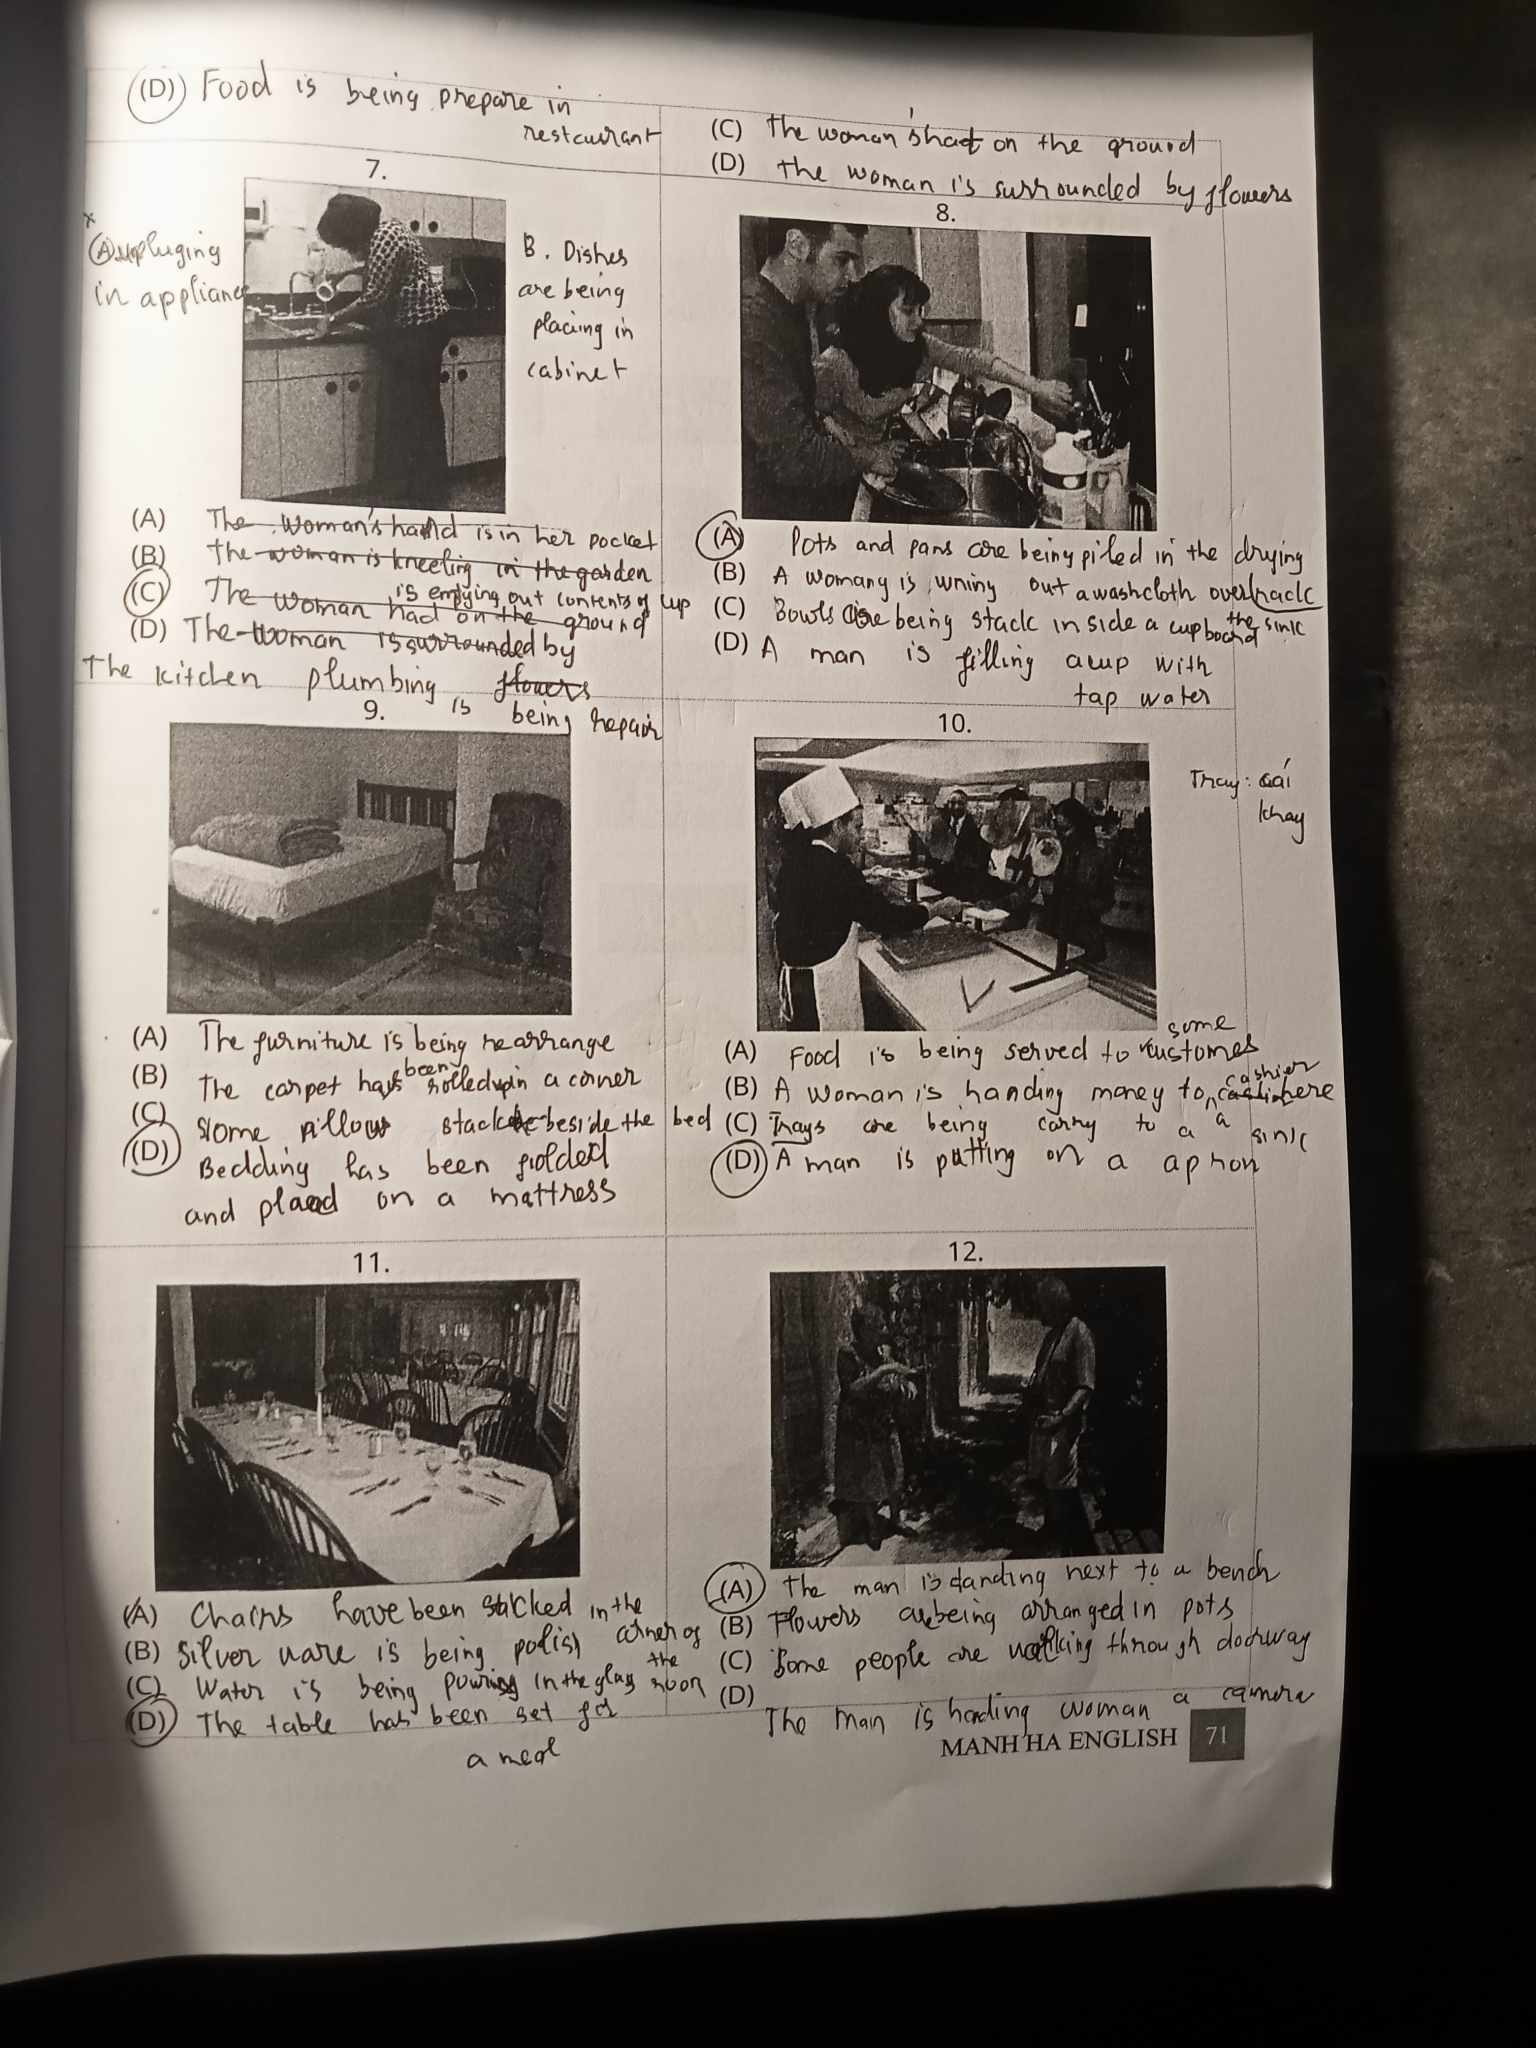 (D) Food is being prepare in
restaurant
(C) The woman's hat on the ground
(D) the woman is surrounded by flowers
7.
x
(A) unpluging
in appliance
B. Dishes
are being
placing in
cabinet
(A) The woman's hand is in her pocket
(B) the woman is kneeling in the garden
is emptying out contents of cup
(C) The woman had on the ground
(D) The woman is surrounded by
flowers
The kitchen plumbing is being repair
8.
(A) Pots and pans are being piled in the drying
rack
(B) A womany is wining out a washcloth over
the sink
(C) Bowls are being stack inside a cupboard
(D) A man is filling a cup with
tap water
9.
(A) The furniture is being rearrange
(B) The carpet has been rolled up in a corner
(C) Some pillows stack beside the bed
(D) Bedding has been folded
and placed on a mattress
10.
Tray: cái
khay
(A) Food is being served to some customes
(B) A woman is handing money to a cashier
(C) Trays are being carry to a sink
(D) A man is putting on a apron
11.
(A) Chairs have been stacked in the
corner of
the
room
(B) Silver ware is being polish
(C) Water is being pouring in the glass
(D) The table has been set for
a meal
12.
(A) the man is standing next to a bench
(B) Flowers are being arranged in pots
(C) Some people are walking through doorway
(D)
The man is handing woman a camera
MANH HA ENGLISH 71